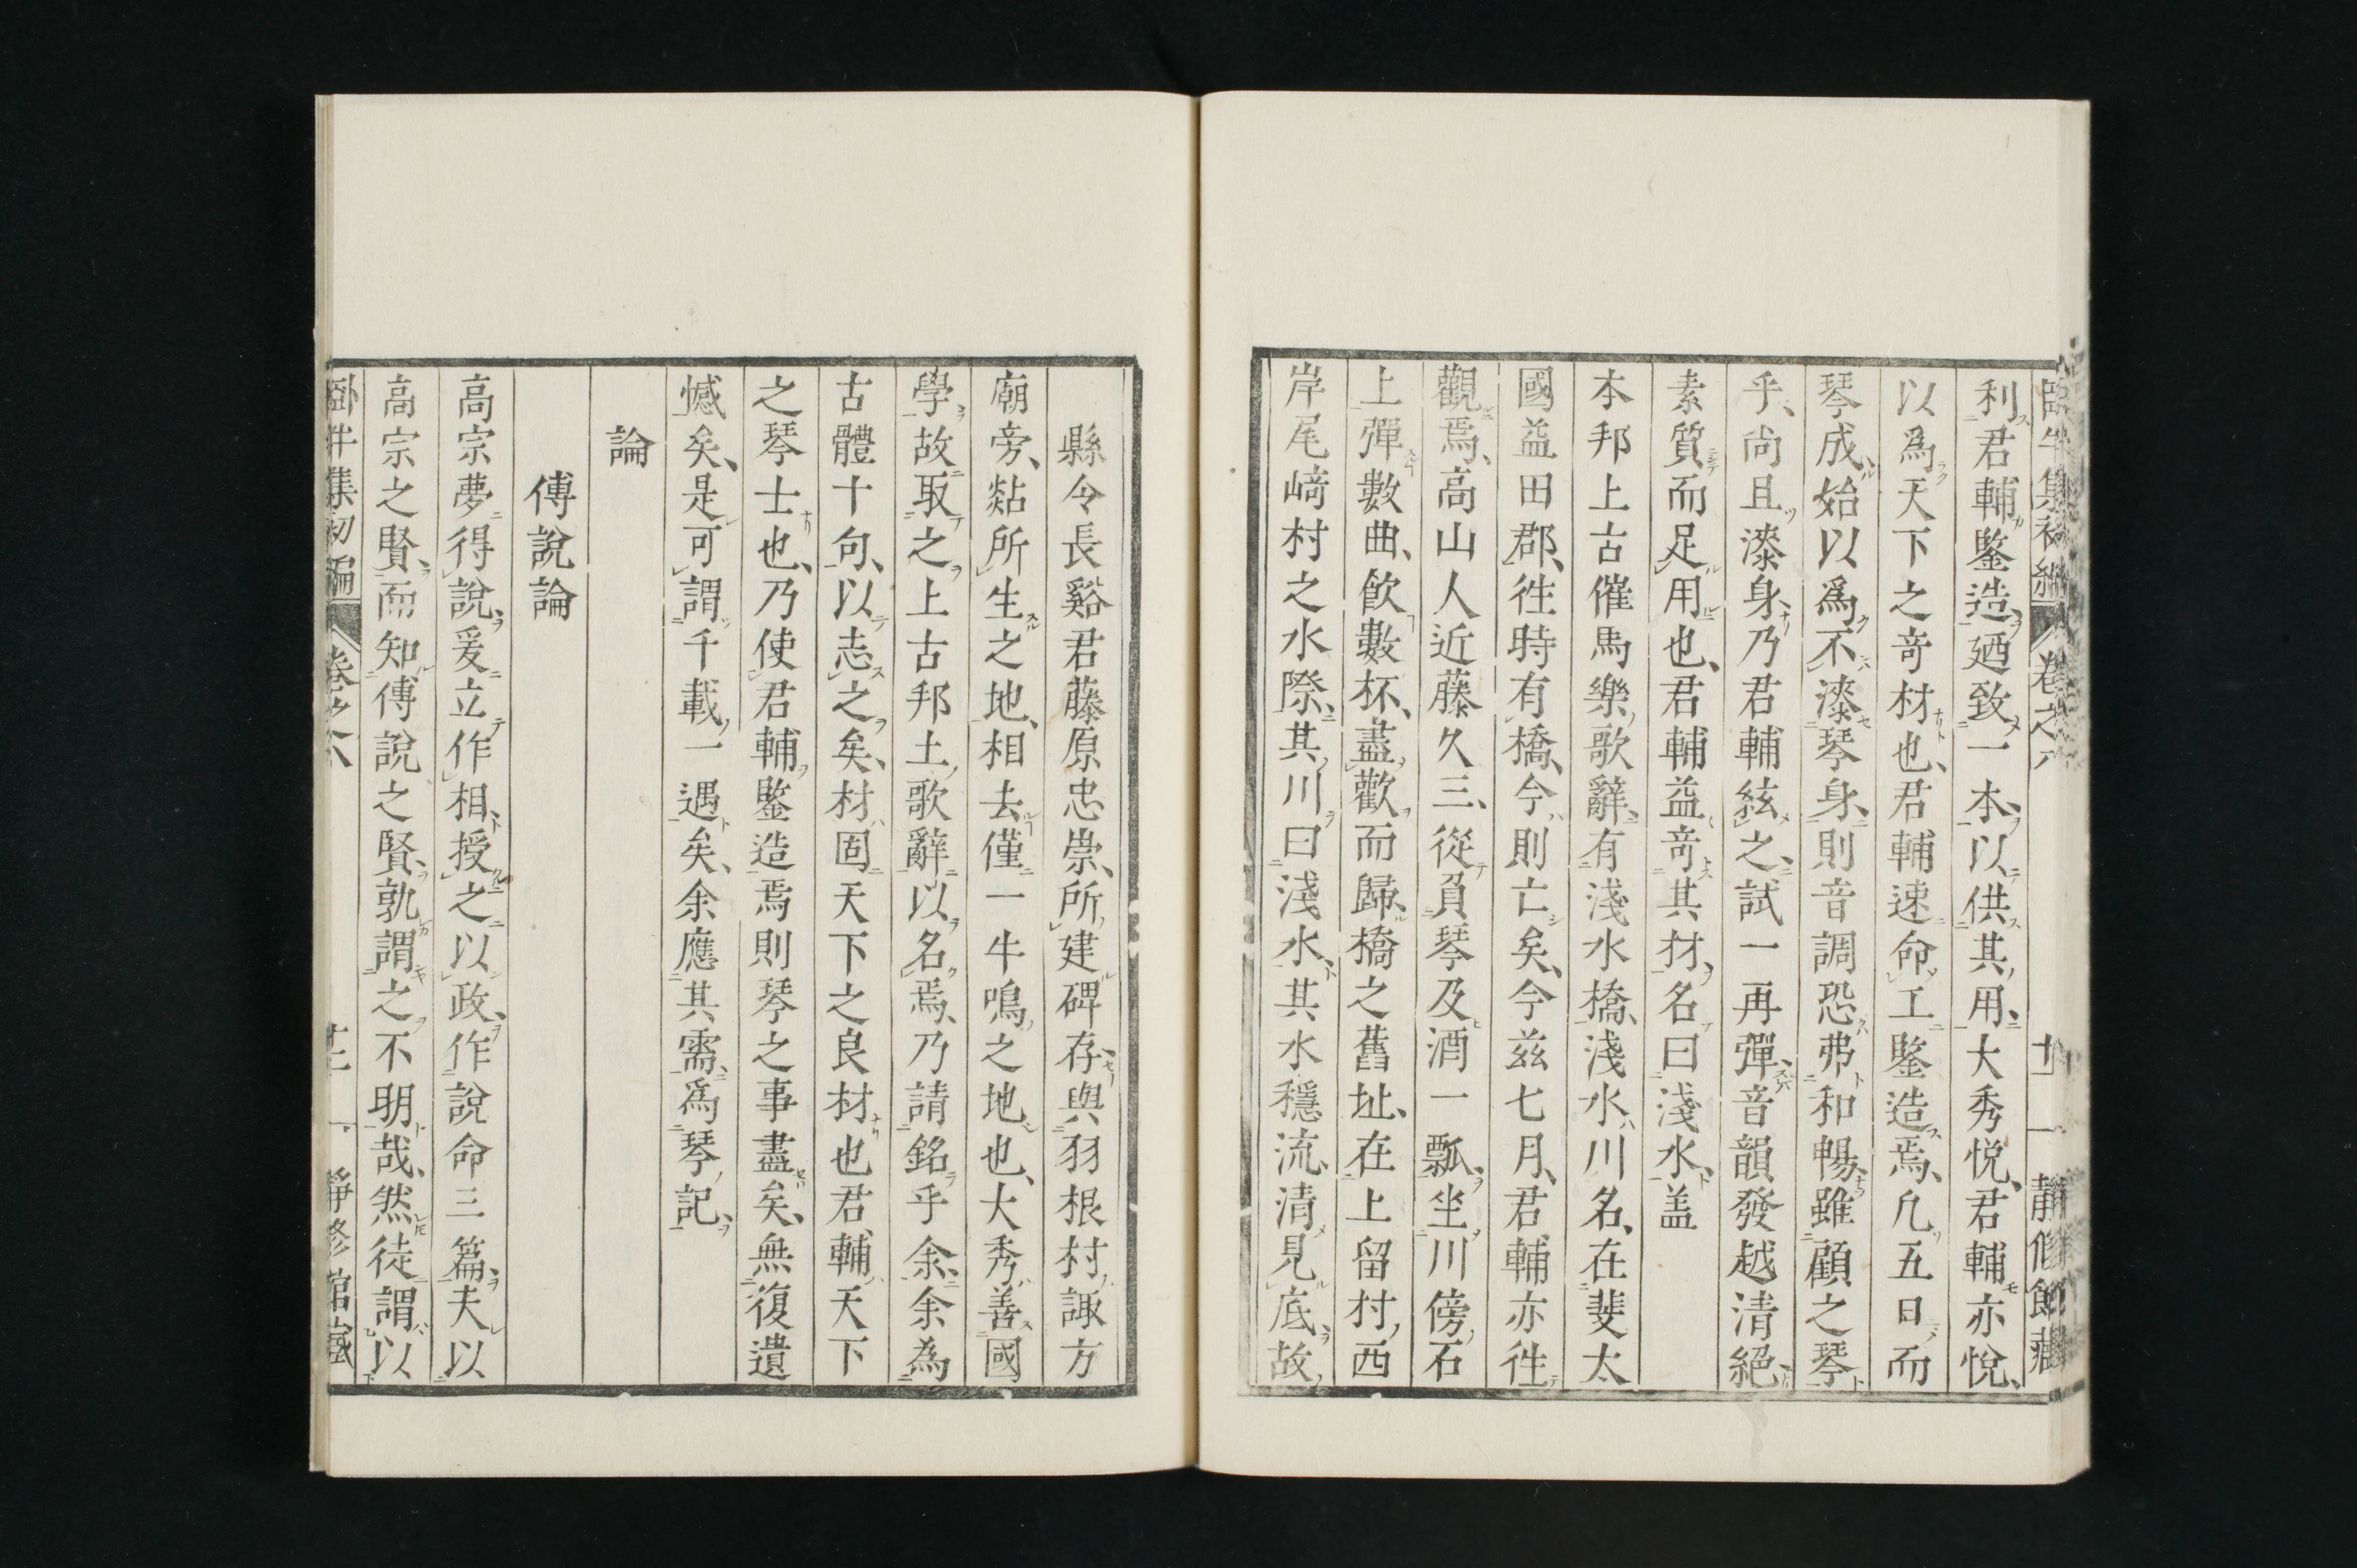 利君輔鑒造、廼致一本、以供其用、大秀悦、君輔亦悅、
以爲天下之竒材也、君輔速命工鑒造焉、凡五日而
琴成、始以爲不漆琴身、則音調恐弗和暢、雖顧之琴
乎、尚且漆身、乃君輔絃之、試一再彈、音韻發越清絕、
素質而足用也、君輔益竒其材、名曰淺水、盖
本邦上古催馬樂歌辭、有淺水橋、淺水川名、在斐太
國益田郡、徃時有橋、今則亡矣、今兹七月、君輔亦徃
觀焉、高山人近藤久三、從負琴及酒一瓢、坐川傍石
上彈數曲、飮數杯、盡歡而歸、橋之舊址、在上留村西
岸尾﨑村之水際、其川曰淺水、其水穩流、清見底、故
縣令長谿君藤原忠崇、所建碑存、與羽根村諏方
廟旁、㸃所生之地、相去僅一牛鳴之地也、大秀善國
學、故取之上古邦土歌辭以名焉、乃請銘乎余、余為
古體十句、以志之矣、材固天下之良材也君輔天下
之琴士也、乃使君輔鑒造焉則琴之事盡矣、無復遺
憾矣、是可謂千載一遇矣、余應其需、爲琴記、
論
傅說論
高宗夢得說、爰立作相、授之以政、作說命三篇、夫以
高宗之賢、而知傅說之賢、孰謂之不明哉、然徒謂以